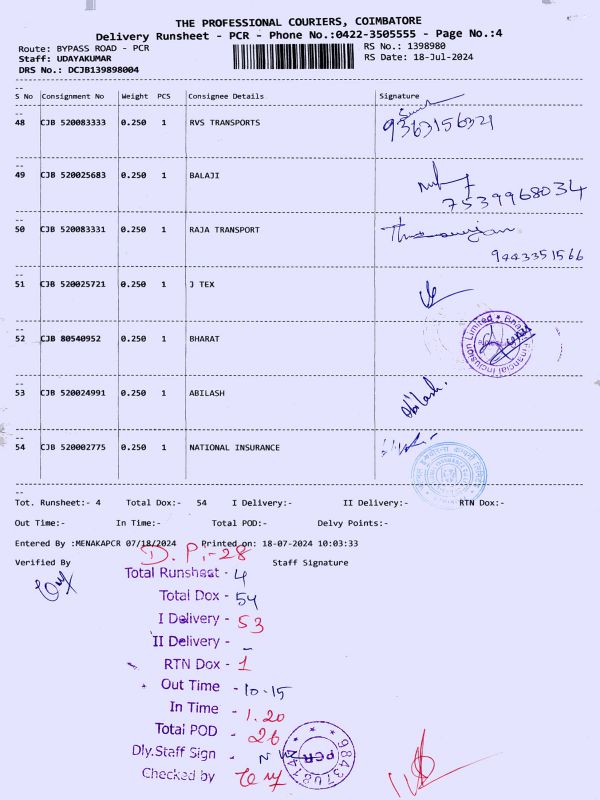 THE PROFESSIONAL COURIERS, COIMBATORE
Delivery Runsheet - PCR - Phone No.:0422-3505555 - Page No.:4
Route: BYPASS ROAD - PCR RS No.: 1398980
Staff: UDAYAKUMAR RS Date: 18-Jul-2024
DRS No.: DCJB139898004
S No Consignment No Weight PCS Consignee Details Signature
48 CJB 520083333 0.250 1 RVS TRANSPORTS
9363156321
49 CJB 520025683 0.250 1 BALAJI
7539968034
50 CJB 520083331 0.250 1 RAJA TRANSPORT
9443351566
51 CJB 520025721 0.250 1 J TEX
52 CJB 80540952 0.250 1 BHARAT
Bharat Financial Inclusion Limited
53 CJB 520024991 0.250 1 ABILASH
Abilash.
54 CJB 520002775 0.250 1 NATIONAL INSURANCE
Tot. Runsheet:- 4 Total Dox:- 54 I Delivery:- II Delivery:- RTN Dox:-
Out Time:- In Time:- Total POD:- Delvy Points:-
Entered By :MENAKAPCR 07/18/2024 Printed on: 18-07-2024 10:03:33
D. Pi-28
Verified By Staff Signature
Total Runsheet - 4
Total Dox - 54
I Delivery - 53
II Delivery - -
RTN Dox - 1
Out Time - 10-15
In Time - 1.20
Total POD - 26
Dly.Staff Sign -
PCR
Checked by